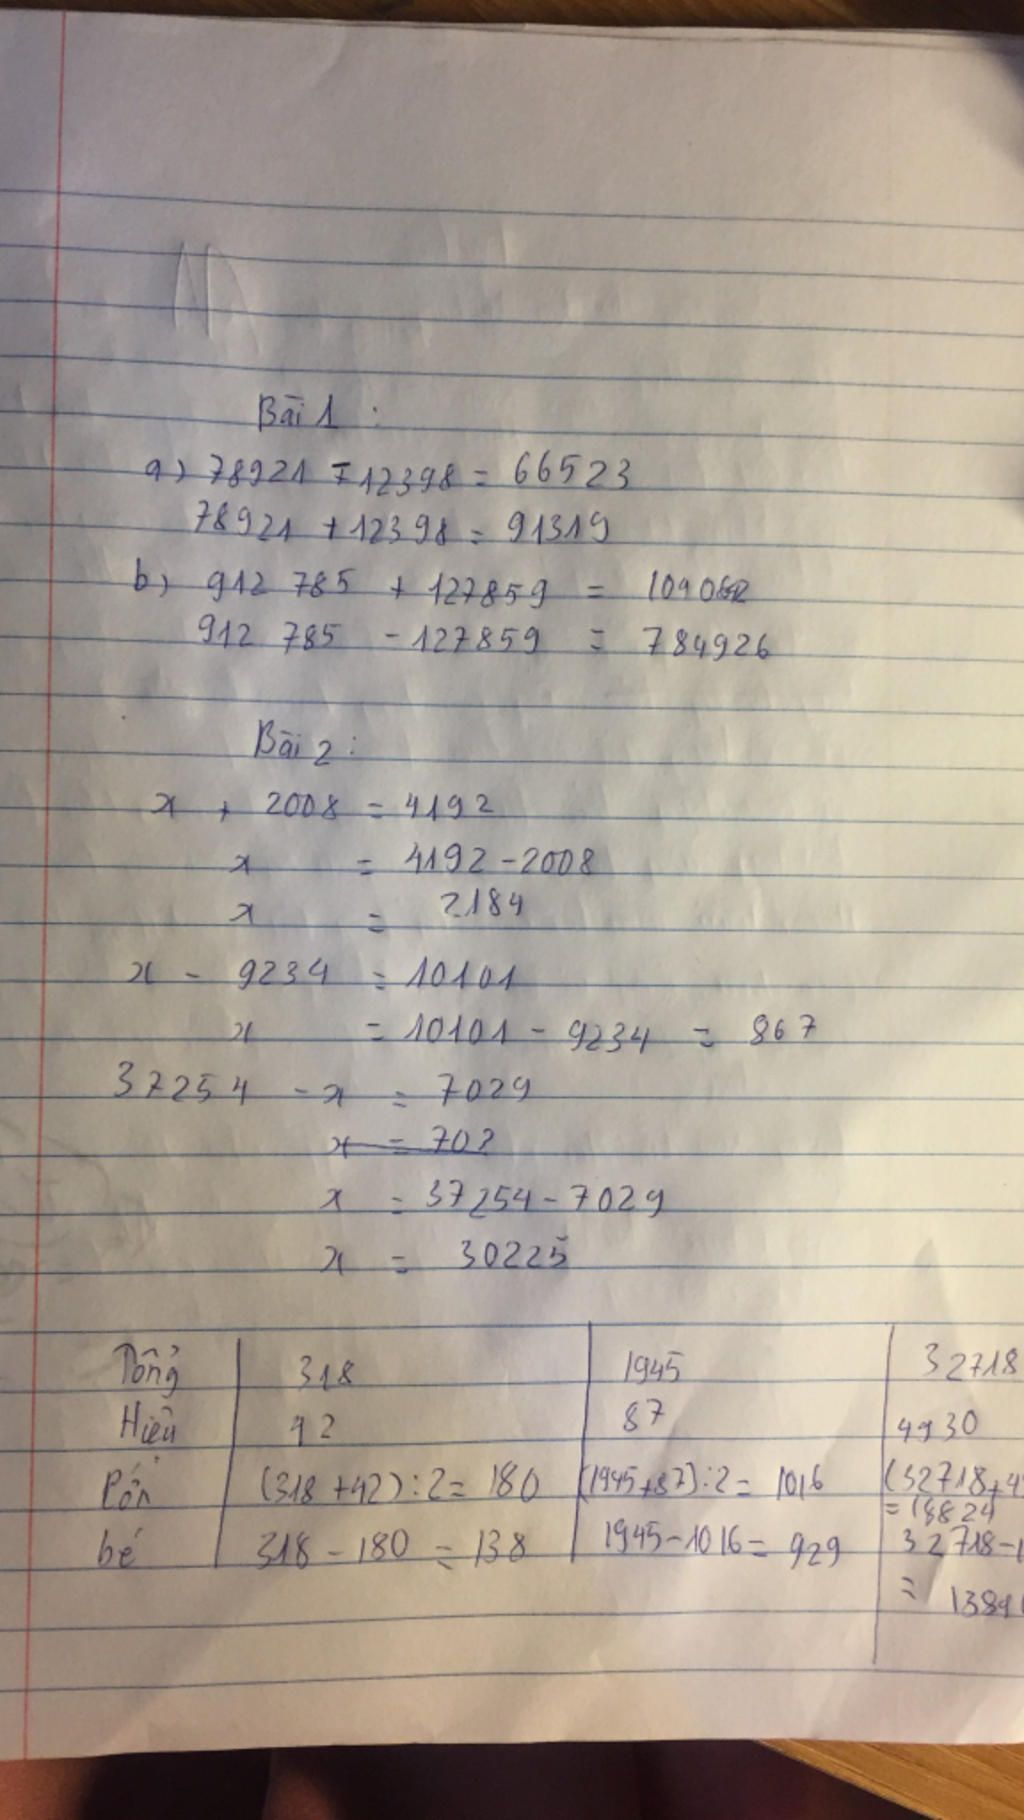 Bài 1 :
a) 78921 - 12398 = 66523
78921 + 12398 = 91319
b) 912 785 + 127859 =
912 785 - 127859 = 784926
Bài 2 :
x + 2008 = 4192
x = 4192 - 2008
x = 2184
x - 9234 = 10101
x = 10101 - 9234 = 867
37254 - x = 7029
x = 702
x = 37254 - 7029
x = 30225
Tổng 318 1945 32718
Hiệu 42 87 4930
Lớn (318 + 42) : 2 = 180 (1945 + 87) : 2 = 1016 (32718 + 49
= 18824
bé 318 - 180 = 138 1945 - 1016 = 929 32718 - 1
= 1389